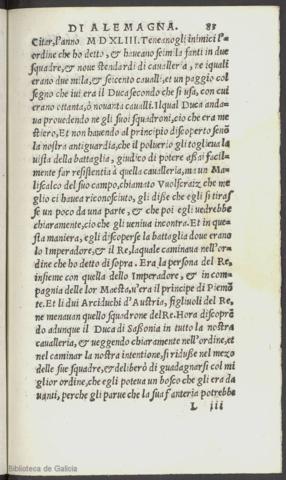 DI ALEMAGNA. 83
Citar, l'anno M D X L I I I. Teneano gli inimici l'or
dine che ho detto, & haueano seimila fanti in due
squadre, & noue stendardi di caualleria, ne i quali
erano due mila, & seicento caualli, et un paggio col
segno che iui era il Duca secondo che si usa, con cui
erano ottanta, ò nouanta caualli. Il qual Duca anda-
ua prouedendo ne gli suoi squadroni, ciò che era me
stiero, Et non hauendo al principio discoperto senõ
la nostra antiguardia, che il poluerio gli toglieua la
uista della battaglia, giudicò di potere assai facil-
mente far resistentia à quella caualleria, ma un Ma-
lisalco del suo campo, chiamato Vuolfcraiz, che me
glio ci hauea riconosciuto, gli disse che egli si tiras
se un poco da una parte, & che poi egli uedrebbe
chiaramente, ciò che gli ueniua incontra. Et in que-
sta maniera, egli discoperse la battaglia doue erano
lo Imperadore, & il Re, laquale caminaua nell'or-
dine che ho detto di sopra. Era la persona del Re,
insieme con quella dello Imperadore, & in com-
pagnia delle lor Maesta, u'era il principe di Piemõ
te. Et li dui Arciduchi d'Austria, figliuoli del Re,
ne menauan quello squadrone del Re. Hora discoprẽ
do adunque il Duca di Sassonia in tutto la nostra
caualleria, & ueggendo chiaramente nell'ordine, et
nel caminar la nostra intentione, si ridusse nel mezo
delle sue squadre, & deliberò di guadagnarsi col mi
glior ordine, che egli poteua un bosco che gli era da
uanti, perche gli parue che la sua fanteria potrebbe
L iii
Biblioteca de Galicia